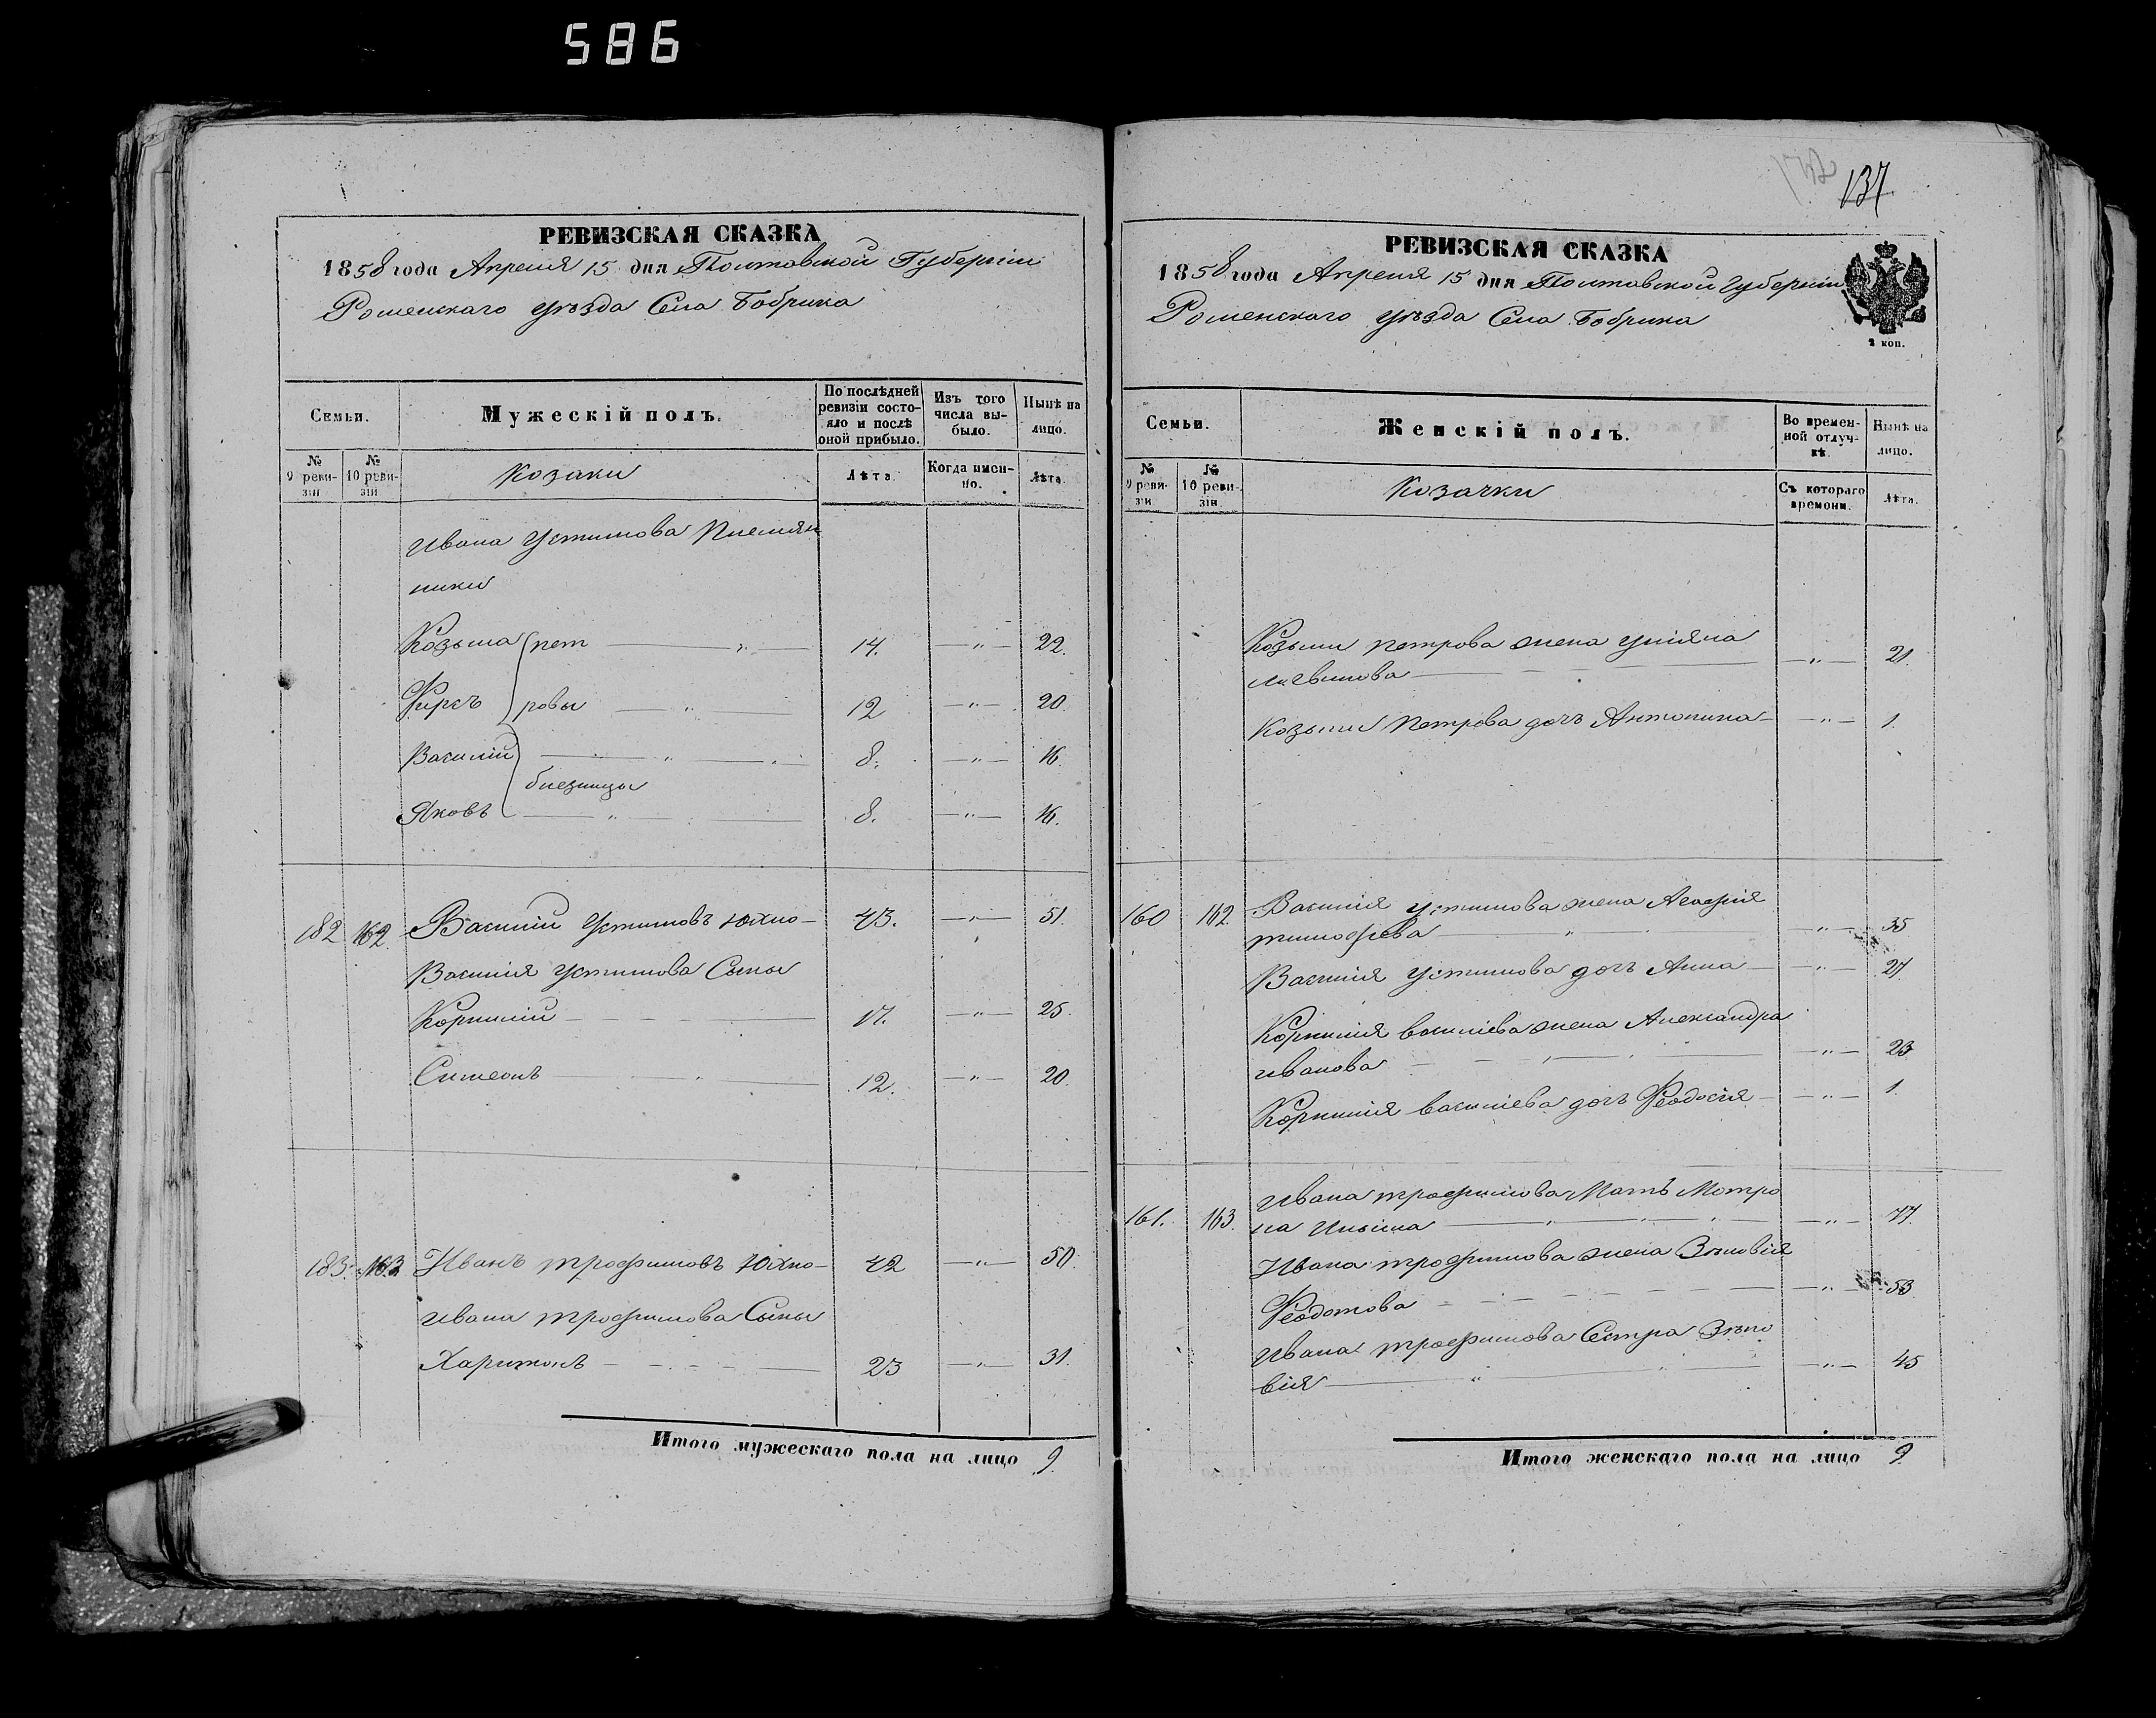 586
РЕВИЗСКАЯ СКАЗКА
1858 года Апреля 15 дня Полтавской Губернiи
Роменскаго уѣзда Села Бобрика
Семьи.
Мужескiй полъ.
По послѣдней ревизiи состояло и послѣ оной прибыло.
Изъ того числа выбыло.
Нынѣ на лицо.
№ 9 ревизiи
№ 10 ревизiи
Козаки
Лѣта.
Когда именно.
Лѣта.
Ивана Устимова Племян
ники
Козьма пет — " — 14. — " — 22.
Фирсъ ровы — " — 12 — " — 20.
Василiй — " — 8. — " — 16.
близнецы
Яковъ — " — 8. — " — 16.
182 162 Василiй Устимовъ Юхно — 43. — " — 51.
Василiя Устимова Сыны
Корнилiй — 17. — " — 25.
Симеонъ — " — 12. — " — 20.
183. 163 Иванъ Трофимовъ Юхно — 42 — " — 50.
Ивана Трофимова Сыны
Харитонъ — 23 — " — 31.
Итого мужескаго пола на лицо 9.
137
РЕВИЗСКАЯ СКАЗКА
1858 года Апреля 15 дня Полтавской Губернiи
Роменскаго уѣзда Села Бобрика
2 коп.
Семьи.
Женскiй полъ.
Во временной отлучкѣ.
Нынѣ на лицо.
№ 9 ревизiи
№ 10 ревизiи.
Козачки
Съ котораго времени.
Лѣта.
Козьмы Петрова жена Улiяна
Литвинова — " — 21.
Козьмы Петрова дочь Антонина — " — 1.
160 162. Василiя Устимова жена Агафiя
Тимофѣева — " — 35
Василiя Устимова дочь Анна — " — 27.
Корнилiя Васильева жена Александра
Иванова — " — 23
Корнилiя Васильева дочь Феодосiя — " — 1.
161. 163. Ивана Трофимова Мать Мотро
на Ильина — " — 77.
Ивана Трофимова жена Зѣновiя
Феодотова — " — 53
Ивана Трофимова Сестра Зѣно
вiя — " — 45
Итого женскаго пола на лицо 9.